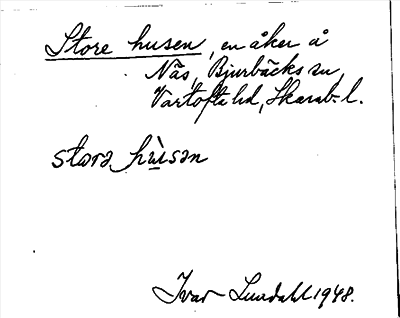 Store husen, en åker å
Näs, Bjurbäcks sn,
Vartofta hd, Skarab. l.
storə hù̱sən
Ivar Lundahl 1948.